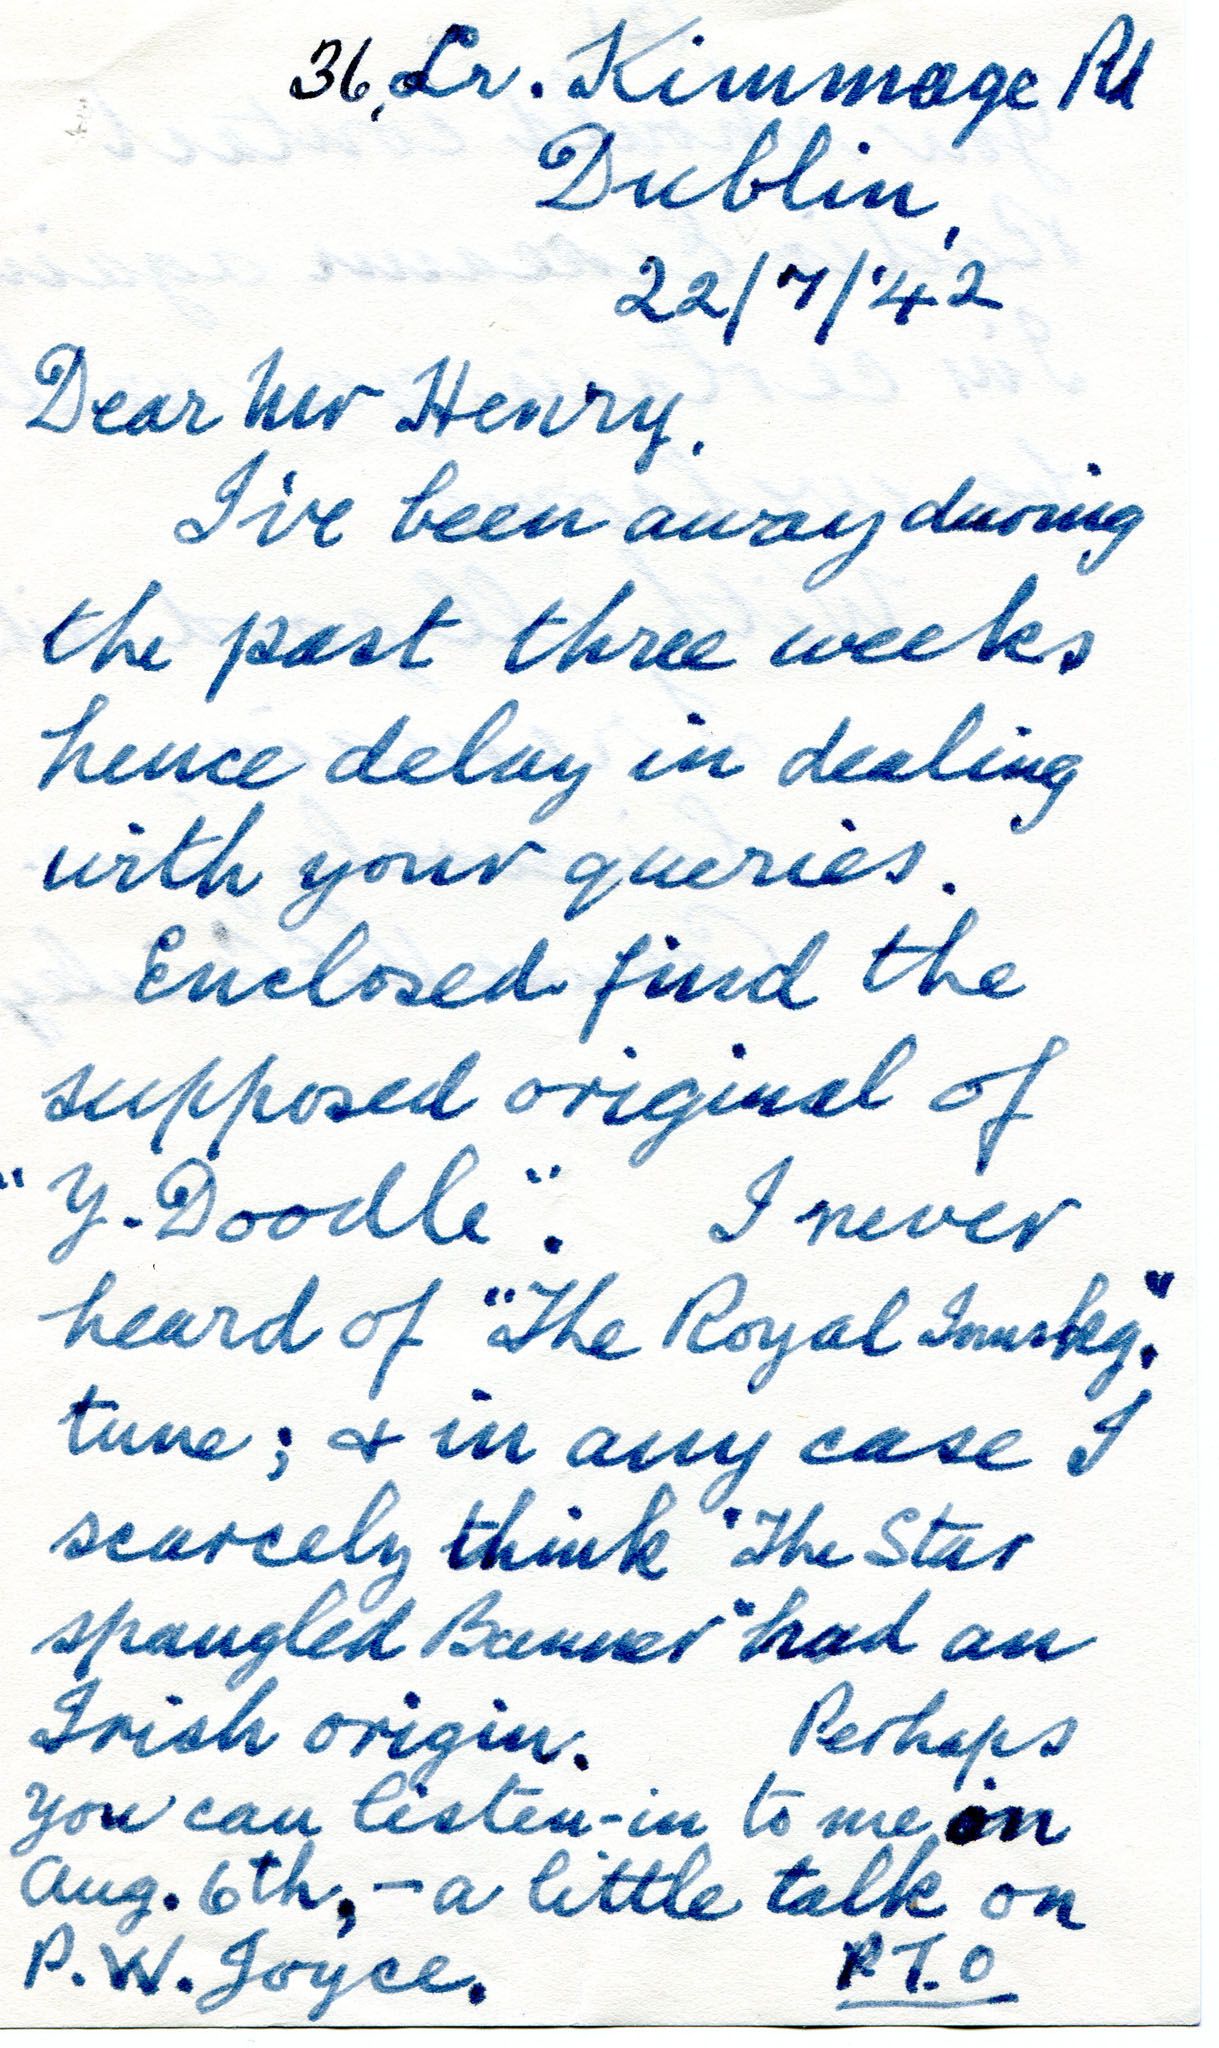 36, Lr. Kimmage Rd
Dublin,
22/7/'42
Dear Mr Henry,
I've been away during
the past three weeks
hence delay in dealing
with your queries.
Enclosed find the
supposed original of
"Y. Doodle". I never
heard of "The Royal Innskg."
tune; & in any case I
scarcely think "The Star
spangled Banner" had an
Irish origin. Perhaps
you can listen-in to me on
Aug. 6th, – a little talk on
P. W. Joyce. P.T.O